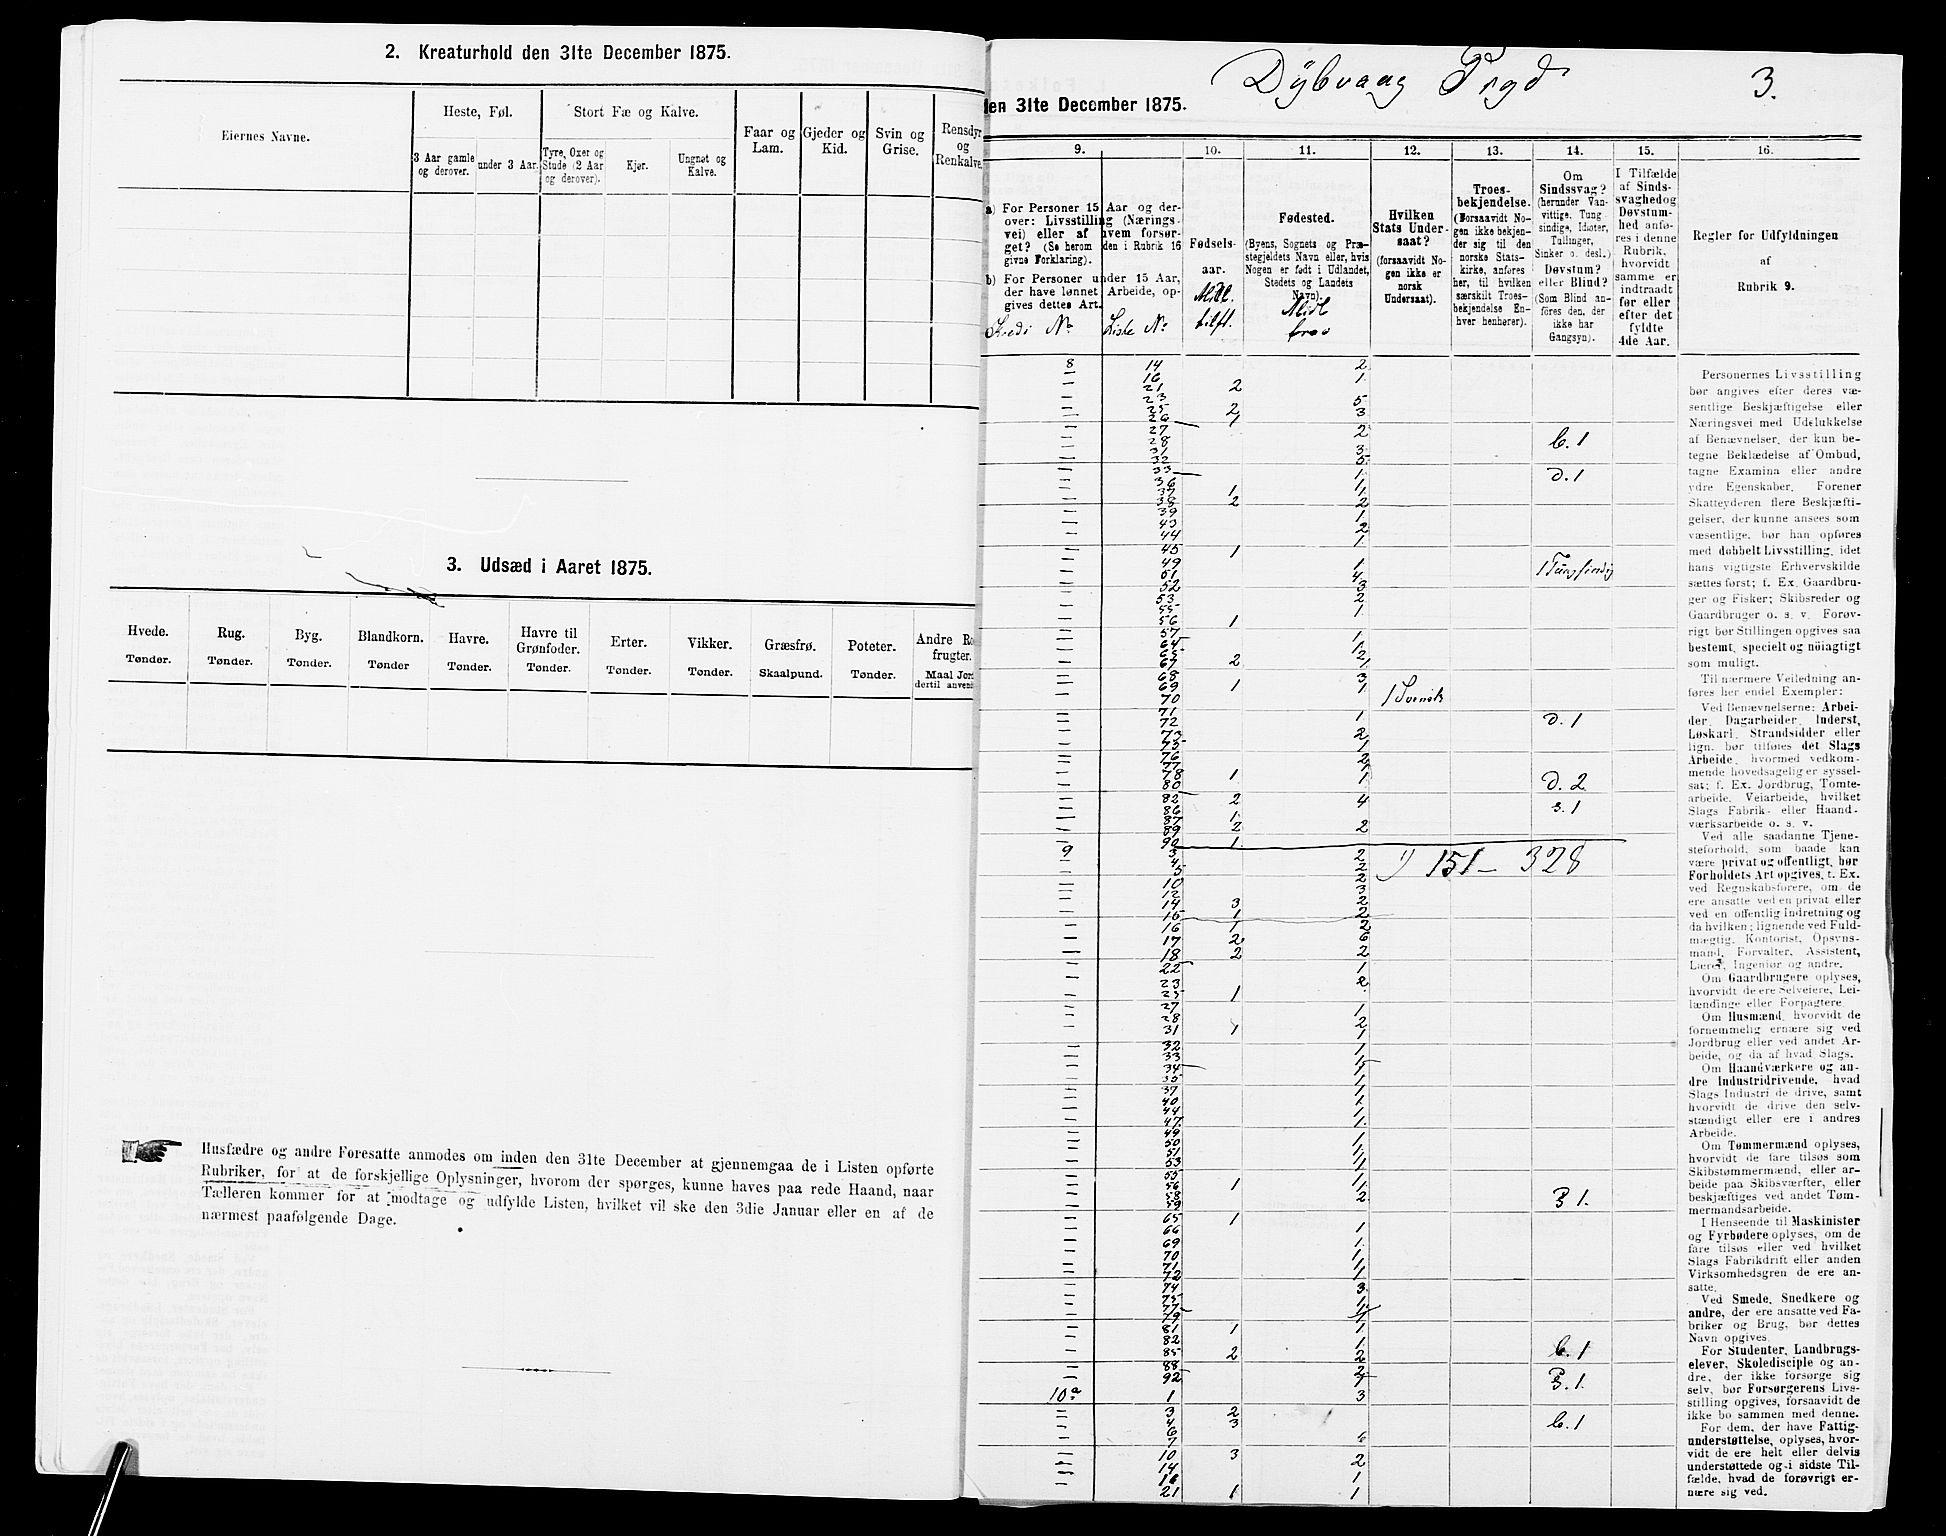 2. Kreaturhold den 31te December 1875.
Eiernes Navne.
Heste, Føl.
Stort Fæ og Kalve.
Faar og
Lam.
Gjeder og
Kid.
Svin og
Grise.
Rensdyr
og
Renkalve.
3 Aar gamle
og derover.
under 3 Aar.
Tyre, Oxer og
Stude (2 Aar
og derover).
Kjør.
Ungnøt og
Kalve.
3. Udsæd i Aaret 1875.
Hvede.
Tønder.
Rug.
Tønder.
Byg.
Tønder.
Blandkorn.
Tønder
Havre.
Tønder.
Havre til
Grønfoder.
Tønder.
Erter.
Tønder.
Vikker.
Tønder.
Græsfrø.
Skaalpund.
Poteter.
Tønder.
Andre
frugter.
Maal Jord
dertil
Husfædre og andre Foresatte anmodes om inden den 31te December at gjennemgaa de i Listen opførte
Rubriker, for at de forskjellige Oplysninger, hvorom der spørges, kunne haves paa rede Haand, naar
Tælleren kommer for at modtage og udfylde Listen, hvilket vil ske den 3die Januar eller en af de
nærmest paafølgende Dage.
Dybvaag Prgd 3.
den 31te December 1875.
9. 10. 11. 12. 13. 14. 15. 16.
a) For Personer 15 Aar og der-
over: Livsstilling (Nærings-
vei) eller af hvem forsør-
get? (Se herom den i Rubrik 16
givne Forklaring).
b) For Personer under 15 Aar,
der have lønnet Arbeide, op-
gives dettes Art.
Kreds No
Liste No
Fødsels-
aar.
Mdl.
tilft.
Fødested.
(Byens, Sognets og Præ-
stegjeldets Navn eller, hvis
Nogen er født i Udlandet,
Stedets og Landets
Navn).
Hvilken
Stats Under-
saat?
(forsaavidt No-
gen ikke er
norsk
Undersaat).
Troes-
bekjendelse.
(Forsaavidt No-
gen ikke bekjen-
der sig til den
norske Stats-
kirke, anføres
her, til hvilken
særskilt Troes-
bekjendelse En-
hver henhører).
Om
Sindssvag?
(herunder Van-
vittige, Tung-
sindige, Idioter,
Tullinger,
Sinker o. desl.)
Døvstum?
eller Blind?
(Som Blind an-
føres den, der
ikke har
Gangsyn).
I Tilfælde
af Sinds-
svaghed og
Døvstum-
hed anfø-
res i denne
Rubrik,
hvorvidt
samme er
indtraadt
før eller
efter det
fyldte
4de Aar.
Regler for Udfyldningen
af
Rubrik 9.
8 14 2
16 1
21 2
23 5
25 2 3
26 1
27 2
28 b. 1
31 3
32 5
33 1 d. 1
36 1
37 1 1
38 2 2
39 1
43 2
44 1
45 1
49 1 1 Tungsindig
51 4
52 3
53 2
55 1
56 1
57 1
64 1
65 2
67 2 1
68 3
69 1 1 1 Svensk
70
71 1
72 d. 1
73 2
75 1
76 2
77 1
78 1 1
80 d. 2
82 2 4
86 3. 1
87 1
89 2 2
90 1
9 3 2 1) 151 - 328
4 2
5 2
10 3
12 2
14 3 2
15 1 2
16 1 2
17 2 6
18 2 2
22 1
23 2
25 1
27 1
28 2
31 1 1
32 1
33 1
34 1
35 1
37 1
40 1
44 1
47 1
49
50 1
51 1
53 1
55 1
56 1 1
58 2 3 1.
59
65 1
66 1
69 1
70 1
71 1
72 1
74 3
75 1
77 1
79 1
81 1 1
82 1
85 2 2 b. 1
88 2
92 1 3. 1.
10a 1 3
3 2
4 3 b. 1
6
7
10 3 2
14
16 1
21 1 1
Personernes Livsstilling
bør angives efter deres væ-
sentlige Beskjæftigelse eller
Næringsvei med Udelukkelse
af Benævnelser, der kun be-
tegne Beklædelse af Ombud,
tagne Examina eller andre
ydre Egenskaber. Forener
Skatteyderen flere Beskjæfti-
gelser, der kunne ansees som
væsentlige, bør han opføres
med dobbelt Livsstilling, idet
hans vigtigste Erhvervskilde
sættes først; f. Ex. Gaardbru-
ger og Fisker; Skibsreder og
Gaardbruger o. s. v. Forøv-
rigt bør Stillingen opgives saa
bestemt, specielt og nöiagtigt
som muligt.
Til nærmere Veiledning an-
føres her endel Exempler:
Ved Benævnelserne: Arbei-
der, Dagarbeider, Inderst,
Løskarl, Strandsidder eller
lign. bør tilføies det Slags
Arbeide, hvormed vedkom-
mende hovedsagelig er syssel-
sat; f. Ex. Jordbrug, Tomte-
arbeide, Veiarbeide, hvilket
Slags Fabrik- eller Haand-
værksarbeide o. s. v.
Ved alle saadanne Tjene-
steforhold, som baade kan
være privat og offentligt, bør
Forholdets Art opgives, t. Ex.
ved Regnskabsførere, om de
ere ansatte ved en privat eller
ved en offentlig Indretning og
da hvilken; lignende ved Fuld-
mægtig, Kontorist, Opsyns-
mand, Forvalter, Assistent,
Lærer, Ingeniør og andre.
Om Gaardbrugere oplyses,
hvorvidt de ere Selveiere, Lei-
lændinge eller Forpagtere.
Om Husmænd, hvorvidt de
fornemmelig ernære sig ved
Jordbrug eller ved andet Ar-
beide, og da af hvad Slags.
Om Haandværkere og an-
dre Industridrivende, hvad
Slags Industri de drive, samt
hvorvidt de drive den selv-
stændigt eller ere i andres
Arbeide.
Om Tømmermænd oplyses,
hvorvidt de fare tilsøs som
Skibstømmermænd, eller ar-
beide paa Skibsværfter, eller
beskjæftiges ved andet Tøm-
mermandsarbeide.
I Henseende til Maskinister
og Fyrbødere oplyses, om de
fare tilsøs eller ved hvilket
Slags Fabrikdrift eller anden
Virksomhedsgren de ere an-
satte.
Ved Smede, Snedkere og
andre, der ere ansatte ved Fa-
briker og Brug, bør dettes
Navn opgives.
For Studenter, Landbrugs-
elever, Skoledisciple og an-
dre, der ikke forsørge sig
selv, bør Forsørgerens Livs-
stilling opgives, forsaavidt de
ikke bo sammen med denne.
For dem, der have Fattig-
understøttelse, oplyses, hvor-
vidt de ere helt eller delvis
understøttede og i sidste Til-
fælde, hvad de forøvrigt er-
nære sig ved.